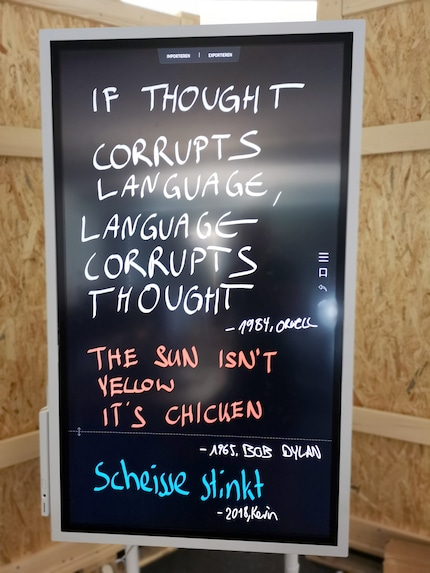 IMPORTIEREN | EXPORTIEREN
IF THOUGHT
CORRUPTS
LANGUAGE,
LANGUAGE
CORRUPTS
THOUGHT
- 1984, ORWELL
THE SUN ISN'T
YELLOW
IT'S CHICKEN
- 1965, BOB DYLAN
Scheisse stinkt
- 2018, Kevin